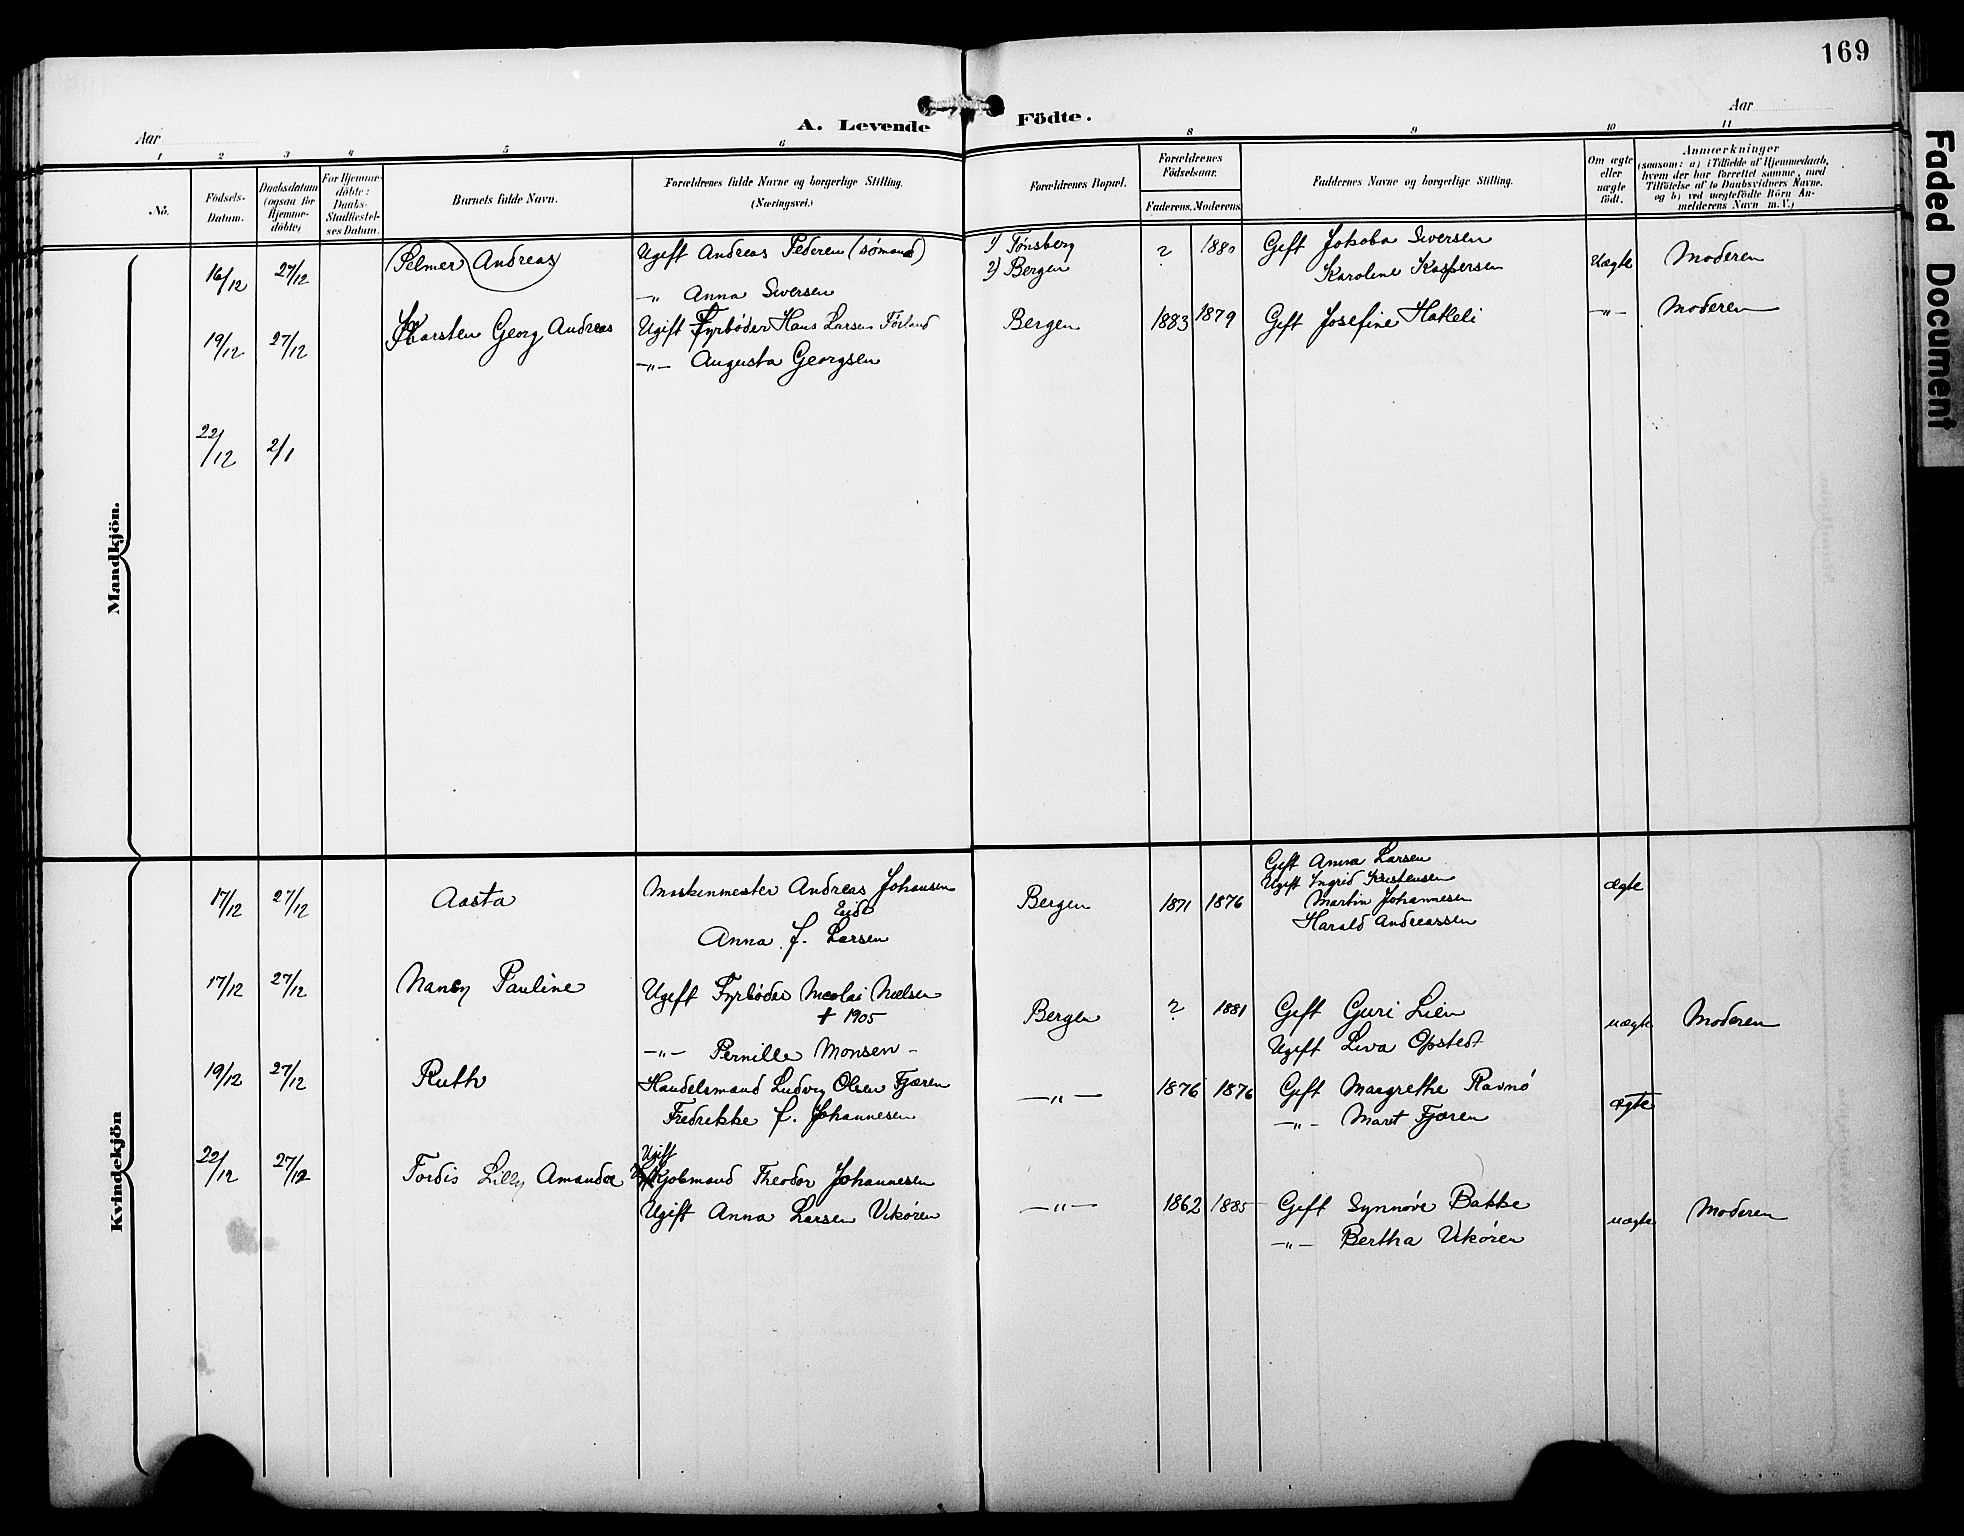 169
Aar
A. Levende Födte.
Aar
1 2 3 4 5 6 8 9 10 11
No.
Födsels-Datum.
Daabsdatum (ogsaa for Hjemme-döbte)
For Hjemme-döbte: Daabs-Stadfæstel-ses Datum.
Barnets fulde Navn.
Forældrenes fulde Navne og borgerlige Stilling. (Næringsvei.)
Forældrenes Bopæl.
Forældrenes Födselsaar.
Faderens. Moderens.
Faddernes Navne og borgerlige Stilling.
Om ægte eller uægte födt.
Anmærkninger
(saasom: a) i Tilfælde af Hjemmedaab, hvem der har forrettet samme, med Tilföielse af to Daabsvidners Navne, og b) ved uægtefödte Börn An-melderens Navn m.V.)
Mandkjön.
16/12 27/12 (Pelmer Andreas) Ugift Andreas Pedersen (sømand) 1) Tønsberg ? 1880 Gift Jakoba Siversen Uægte Moderen
—"— Anna Siversen 2) Bergen Karoline Kaspersen
19/12 27/12 Karsten Georg Andreas Ugift Fyrbøder Hans Larsen Førland Bergen 1883 1879 Gift Josefine Hakleli —"— Moderen
—"— Augusta Georgsen
22/12 2/1
Kvindekjön
17/12 27/12 Aasta Maskinmester Andreas Johansen Eide Bergen 1871 1876 Gift Anna Larsen ægte
Anna f. Larsen Ugift Ingrid Kristensen
Martin Johannesen
Harald Andreassen
17/12 27/12 Nancy Pauline Ugift Fyrbøder Nicolai Nielsen Bergen ? 1881 Gift Guri Lien uægte Moderen
† 1905
—"— Pernille Monsen Ugift Liva Opstedt
19/12 27/12 Ruth Handelsmand Ludvig Olsen Fjæren —"— 1876 1876 Gift Margrethe Ravnö ægte
Fredrikke f. Johannesen —"— Marit Fjæren
22/12 27/12 Tordis Lilly Amanda Ugift Kjøbmand Theodor Johannesen —"— 1862 1885 Gift Synnøve Bakke uægte Moderen
Ugift Anna Larsen Vikøren —"— Bertha Vikøren
Faded Document